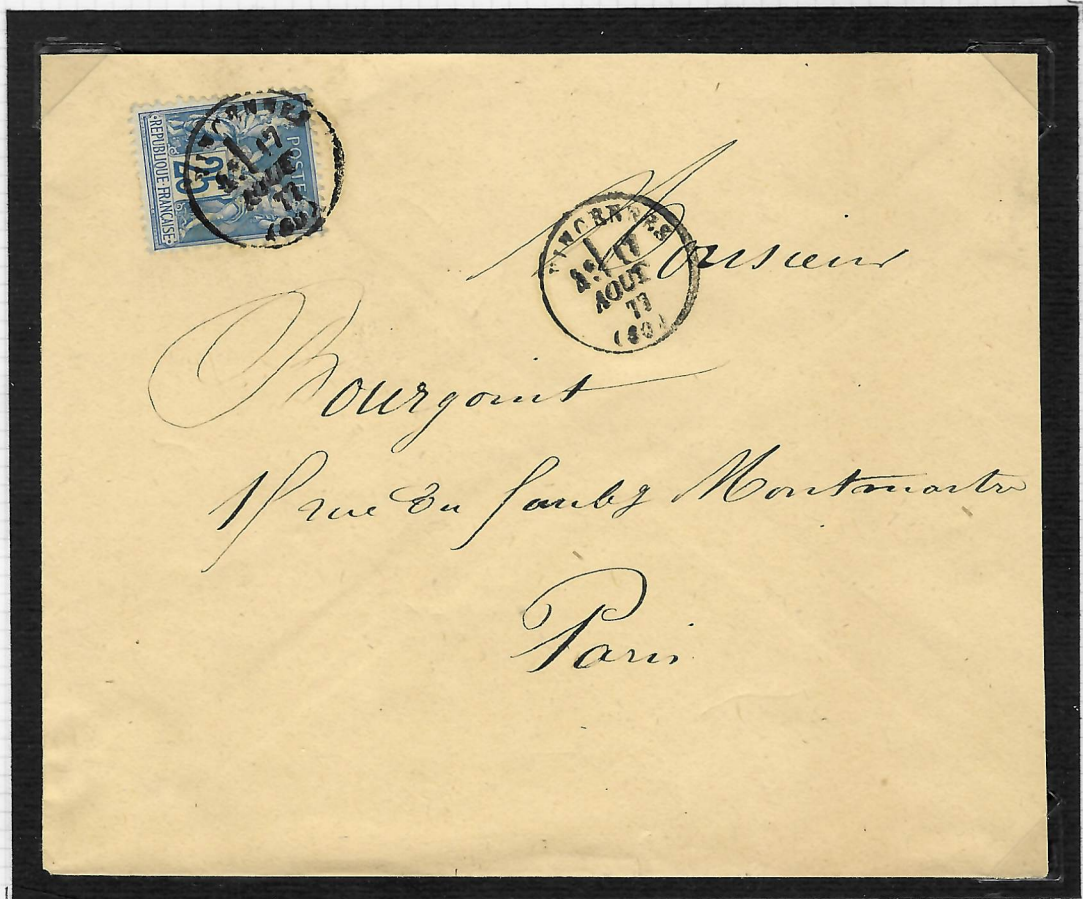 POSTES
25
REPUBLIQUE FRANÇAISE
VINCENNES
17
AOUT
77
(60)
VINCENNES
17
AOUT
77
(60)
Monsieur
Bourgoint
15 rue du Faubg Montmartre
Paris